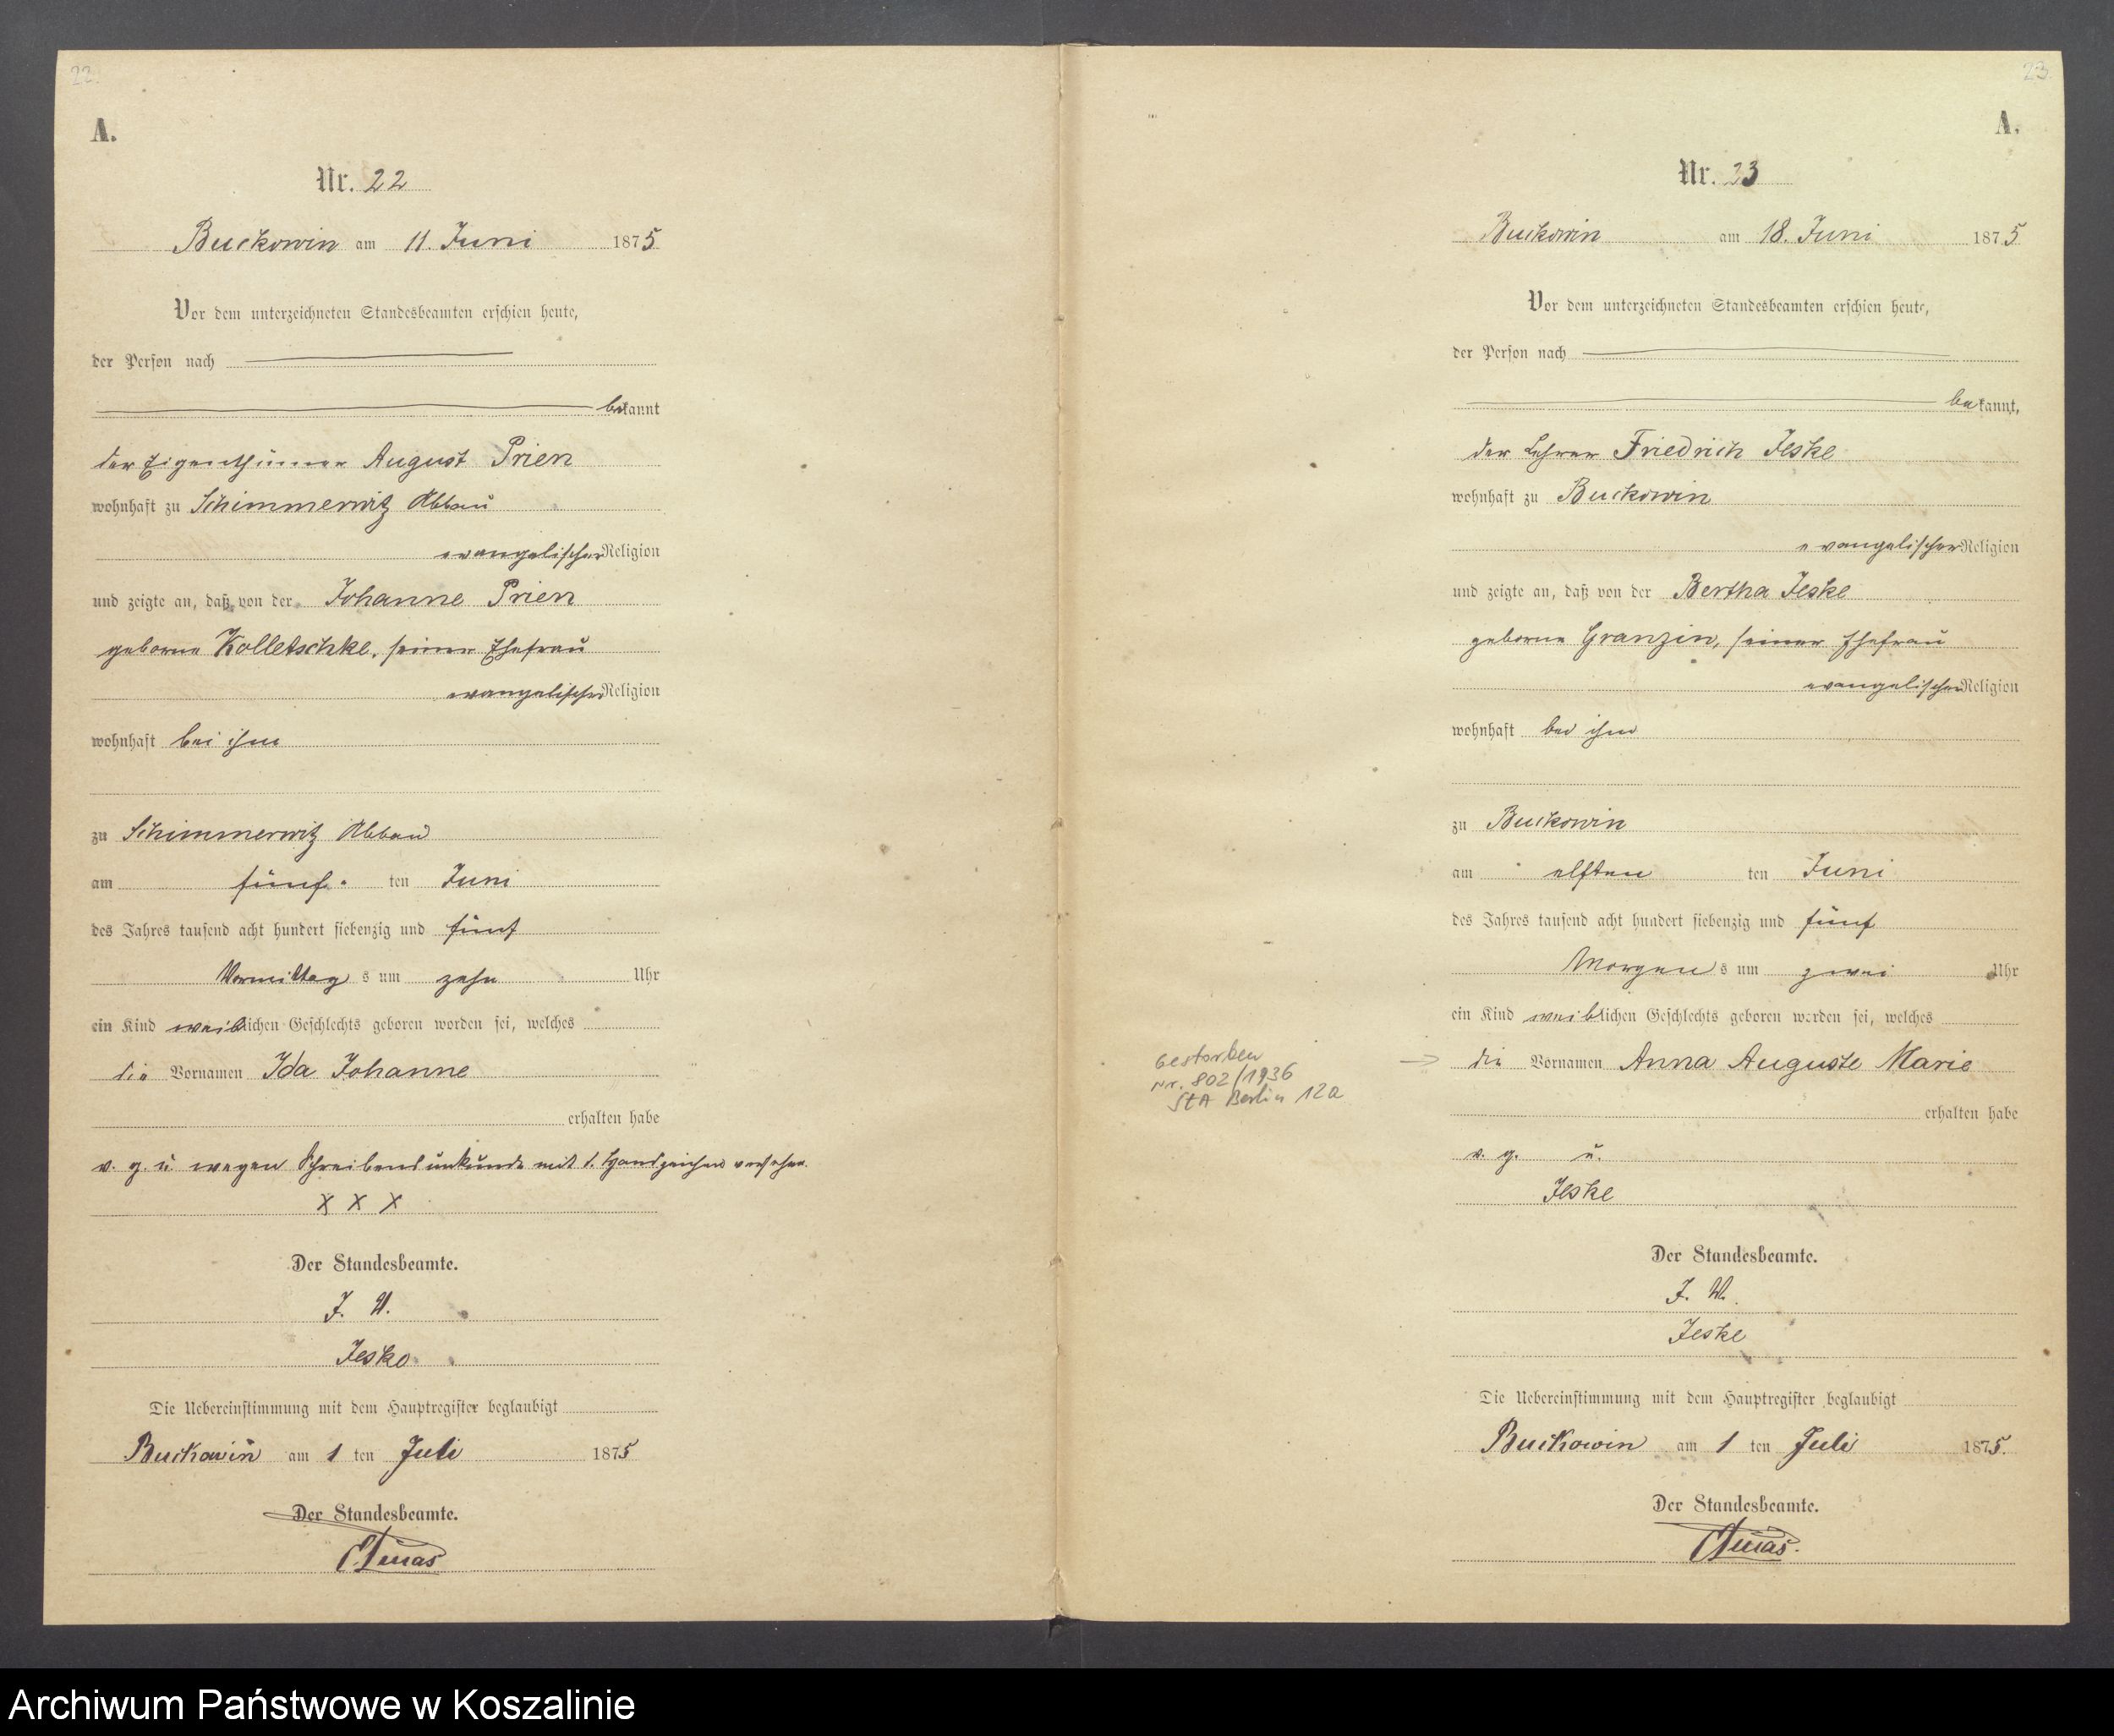 22.
A.
Nr. 22
Buckowin am 11. Juni 1875
Vor dem unterzeichneten Standesbeamten erschien heute,
der Person nach
bekannt
der Eigenthümer August Prien
wohnhaft zu Schimmerwitz Abbau
evangelischer Religion
und zeigte an, daß von der Johanne Prien
geborne Kolletschke, seiner Ehefrau
evangelischer Religion
wohnhaft bei ihm
zu Schimmerwitz Abbau
am fünf ten Juni
des Jahres tausend acht hundert siebenzig und fünf
Vormittag s um zehn Uhr
ein Kind weiblichen Geschlechts geboren worden sei, welches
die Vornamen Ida Johanne
erhalten habe
v. g. u. wegen Schreibensunkunde mit 3 Handzeichen versehen.
X X X
Der Standesbeamte.
J. V.
Jeske
Die Uebereinstimmung mit dem Hauptregister beglaubigt
Buckowin am 1 ten Juli 1875
Der Standesbeamte.
23.
A.
Nr. 23
Buckowin am 18. Juni 1875
Vor dem unterzeichneten Standesbeamten erschien heute,
der Person nach
bekannt,
der Lehrer Friedrich Jeske
wohnhaft zu Buckowin
evangelischer Religion
und zeigte an, daß von der Bertha Jeske
geborne Granzin, seiner Ehefrau
evangelischer Religion
wohnhaft bei ihm
zu Buckowin
am elften ten Juni
des Jahres tausend acht hundert siebenzig und fünf
Morgen s um zwei Uhr
ein Kind weiblichen Geschlechts geboren worden sei, welches
gestorben
Nr. 802/1936
StA Berlin 12a
→ die Vornamen Anna Auguste Marie
erhalten habe
v. g. u.
Jeske
Der Standesbeamte.
J. V.
Jeske
Die Uebereinstimmung mit dem Hauptregister beglaubigt
Buckowin am 1 ten Juli 1875.
Der Standesbeamte.
Archiwum Państwowe w Koszalinie